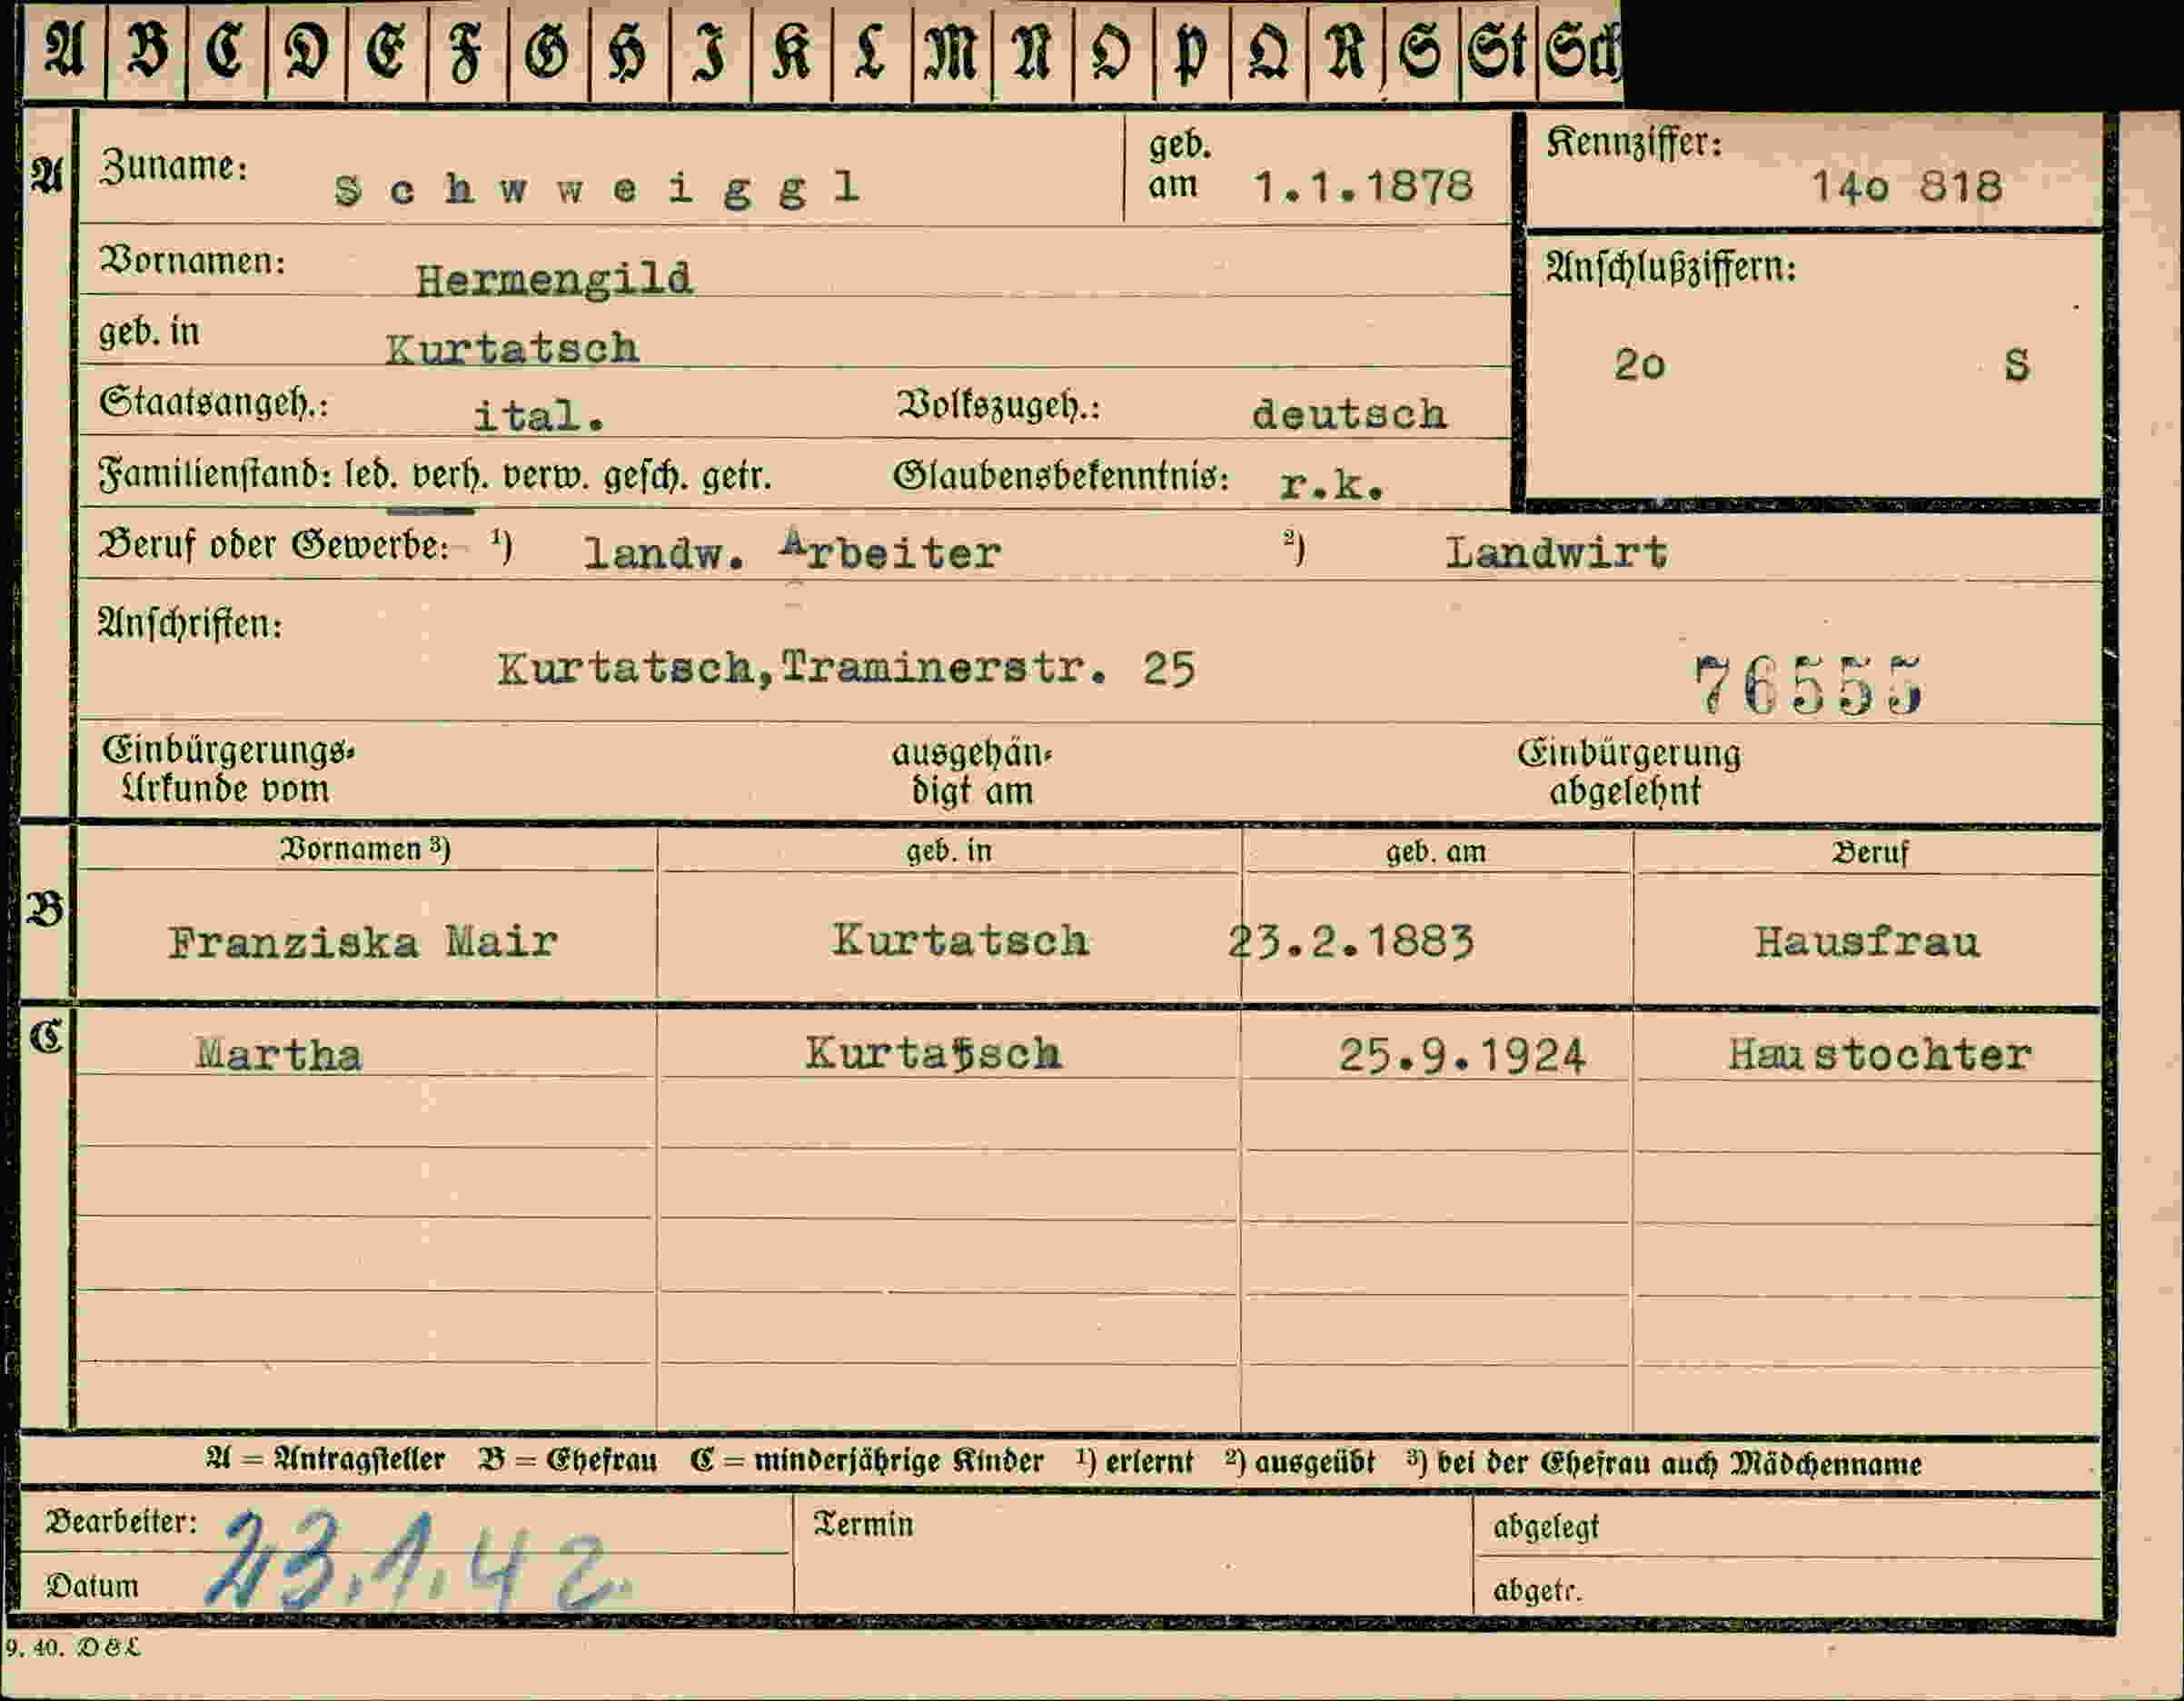 A B C D E F G H I K L M N O P Q R S St Sch
A Zuname: S c h w w e i g g l geb. am 1.1.1878 Kennziffer: 14o 818
Vornamen: Hermengild Anschlußziffern:
geb. in Kurtatsch 2o S
Staatsangeh.: ital. Volkszugeh.: deutsch
Familienstand: led. verh. verw. gesch. getr. Glaubensbekenntnis: r.k.
Beruf oder Gewerbe: ¹) landw. Arbeiter ²) Landwirt
Anschriften:
Kurtatsch,Traminerstr. 25 76555
Einbürgerungs- ausgehän- Einbürgerung
Urkunde vom digt am abgelehnt
Vornamen ³) geb. in geb. am Beruf
B Franziska Mair Kurtatsch 23.2.1883 Hausfrau
C Martha Kurtatsch 25.9.1924 Haustochter
A = Antragsteller B = Ehefrau C = minderjährige Kinder ¹) erlernt ²) ausgeübt ³) bei der Ehefrau auch Mädchenname
Bearbeiter: Termin abgelegt
Datum 23.1.42. abgetr.
9. 40. D&L